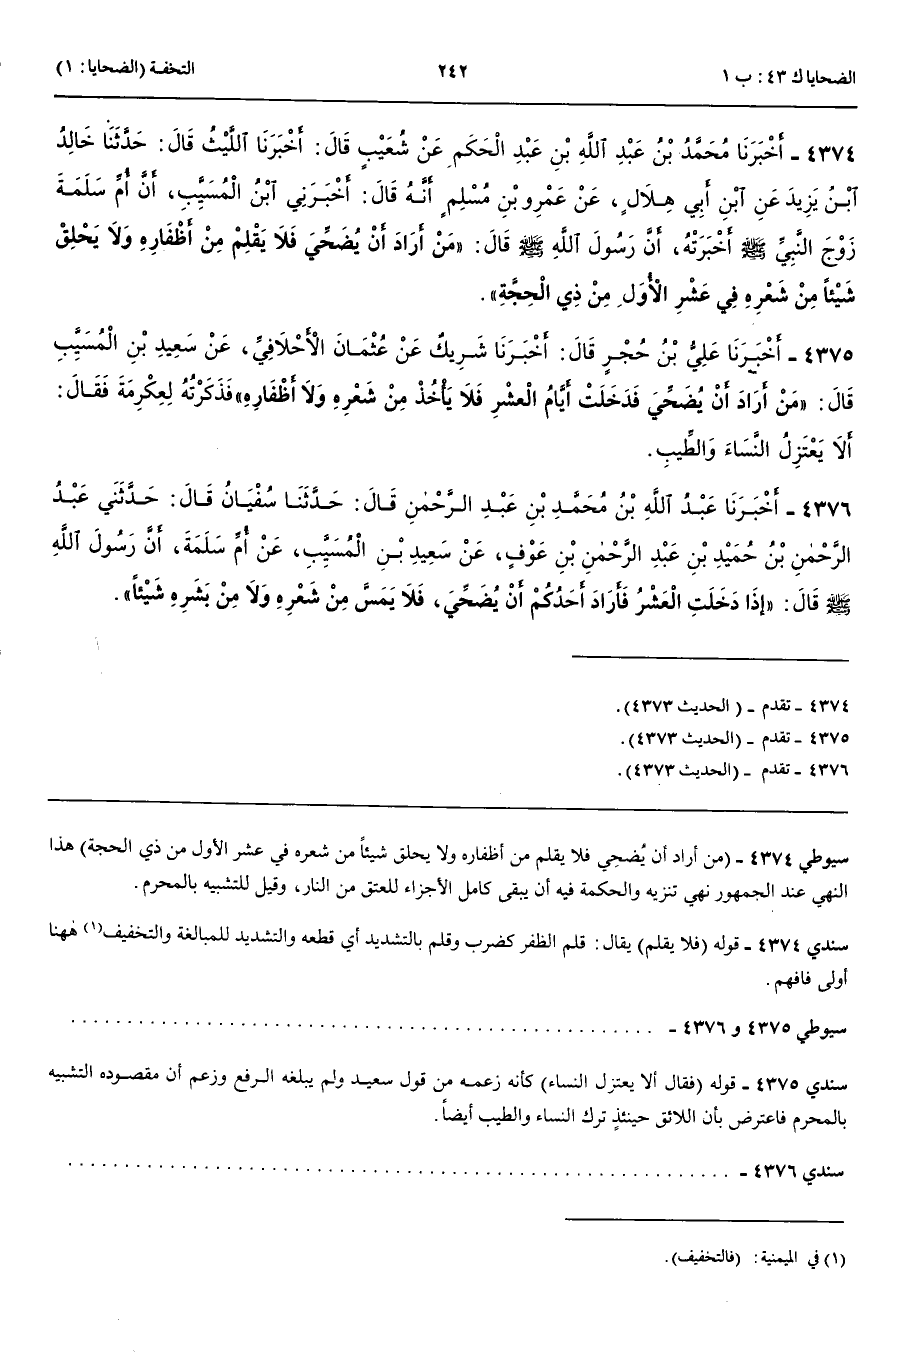 الضحايا ك ٤٣: ب ١
٢٤٢
التحفة (الضحايا: ١)
٤٣٧٤ ـ أَخْبَرَنَا مُحَمَّدُ بْنُ عَبْدِ ٱللَّهِ بْنِ عَبْدِ الْحَكَمِ عَنْ شُعَيْبٍ قَالَ: أَخْبَرَنَا ٱللَّيْثُ قَالَ: حَدَّثَنَا خَالِدُ
ٱبْنُ يَزِيدَ عَنِ ٱبْنِ أَبِي هِلَالٍ، عَنْ عَمْرِو بْنِ مُسْلِمٍ أَنَّهُ قَالَ: أَخْبَرَنِي ٱبْنُ الْمُسَيَّبِ، أَنَّ أُمَّ سَلَمَةَ
زَوْجَ النَّبِيِّ ﷺ أَخْبَرَتْهُ، أَنَّ رَسُولَ ٱللَّهِ ﷺ قَالَ: «مَنْ أَرَادَ أَنْ يُضَحِّيَ فَلَا يَقْلِمْ مِنْ أَظْفَارِهِ وَلَا يَحْلِقْ
شَيْئاً مِنْ شَعْرِهِ فِي عَشْرِ الْأُوَلِ مِنْ ذِي الْحِجَّةِ».
٤٣٧٥ ـ أَخْبَرَنَا عَلِيُّ بْنُ حُجْرٍ قَالَ: أَخْبَرَنَا شَرِيكٌ عَنْ عُثْمَانَ الْأَحْلَافِيِّ، عَنْ سَعِيدِ بْنِ الْمُسَيَّبِ
قَالَ: «مَنْ أَرَادَ أَنْ يُضَحِّيَ فَدَخَلَتْ أَيَّامُ الْعَشْرِ فَلَا يَأْخُذْ مِنْ شَعْرِهِ وَلَا أَظْفَارِهِ» فَذَكَرْتُهُ لِعِكْرِمَةَ فَقَالَ:
أَلَا يَعْتَزِلُ النِّسَاءَ وَالطِّيبَ.
٤٣٧٦ ـ أَخْبَرَنَا عَبْدُ اللَّهِ بْنُ مُحَمَّدِ بْنِ عَبْدِ الرَّحْمٰنِ قَالَ: حَدَّثَنَا سُفْيَانُ قَالَ: حَدَّثَنِي عَبْدُ
الرَّحْمٰنِ بْنُ حُمَيْدِ بْنِ عَبْدِ الرَّحْمٰنِ بْنِ عَوْفٍ، عَنْ سَعِيدِ بْنِ الْمُسَيَّبِ، عَنْ أُمِّ سَلَمَةَ، أَنَّ رَسُولَ ٱللَّهِ
ﷺ قَالَ: «إِذَا دَخَلَتِ الْعَشْرُ فَأَرَادَ أَحَدُكُمْ أَنْ يُضَحِّيَ، فَلَا يَمَسَّ مِنْ شَعْرِهِ وَلَا مِنْ بَشَرِهِ شَيْئاً».
٤٣٧٤ ـ تقدم ـ ( الحديث ٤٣٧٣).
٤٣٧٥ ـ تقدم ـ (الحديث ٤٣٧٣).
٤٣٧٦ ـ تقدم ـ (الحديث ٤٣٧٣).
سيوطي ٤٣٧٤ ـ (من أراد أن يُضحي فلا يقلم من أظفاره ولا يحلق شيئاً من شعره في عشر الأول من ذي الحجة) هذا
النهي عند الجمهور نهي تنزيه والحكمة فيه أن يبقى كامل الأجزاء للعتق من النار، وقيل للتشبيه بالمحرم.
سندي ٤٣٧٤ ـ قوله (فلا يقلم) يقال: قلم الظفر كضرب وقلم بالتشديد أي قطعه والتشديد للمبالغة والتخفيف(١) ههنا
أولى فافهم.
سيوطي ٤٣٧٥ و ٤٣٧٦ ـ ..................................................
سندي ٤٣٧٥ ـ قوله (فقال ألا يعتزل النساء) كأنه زعمه من قول سعيد ولم يبلغه الرفع وزعم أن مقصوده التشبيه
بالمحرم فاعترض بأن اللائق حينئذٍ ترك النساء والطيب أيضاً.
سندي ٤٣٧٦ ـ ..................................................
(١) في الميمنية: (فالتخفيف).